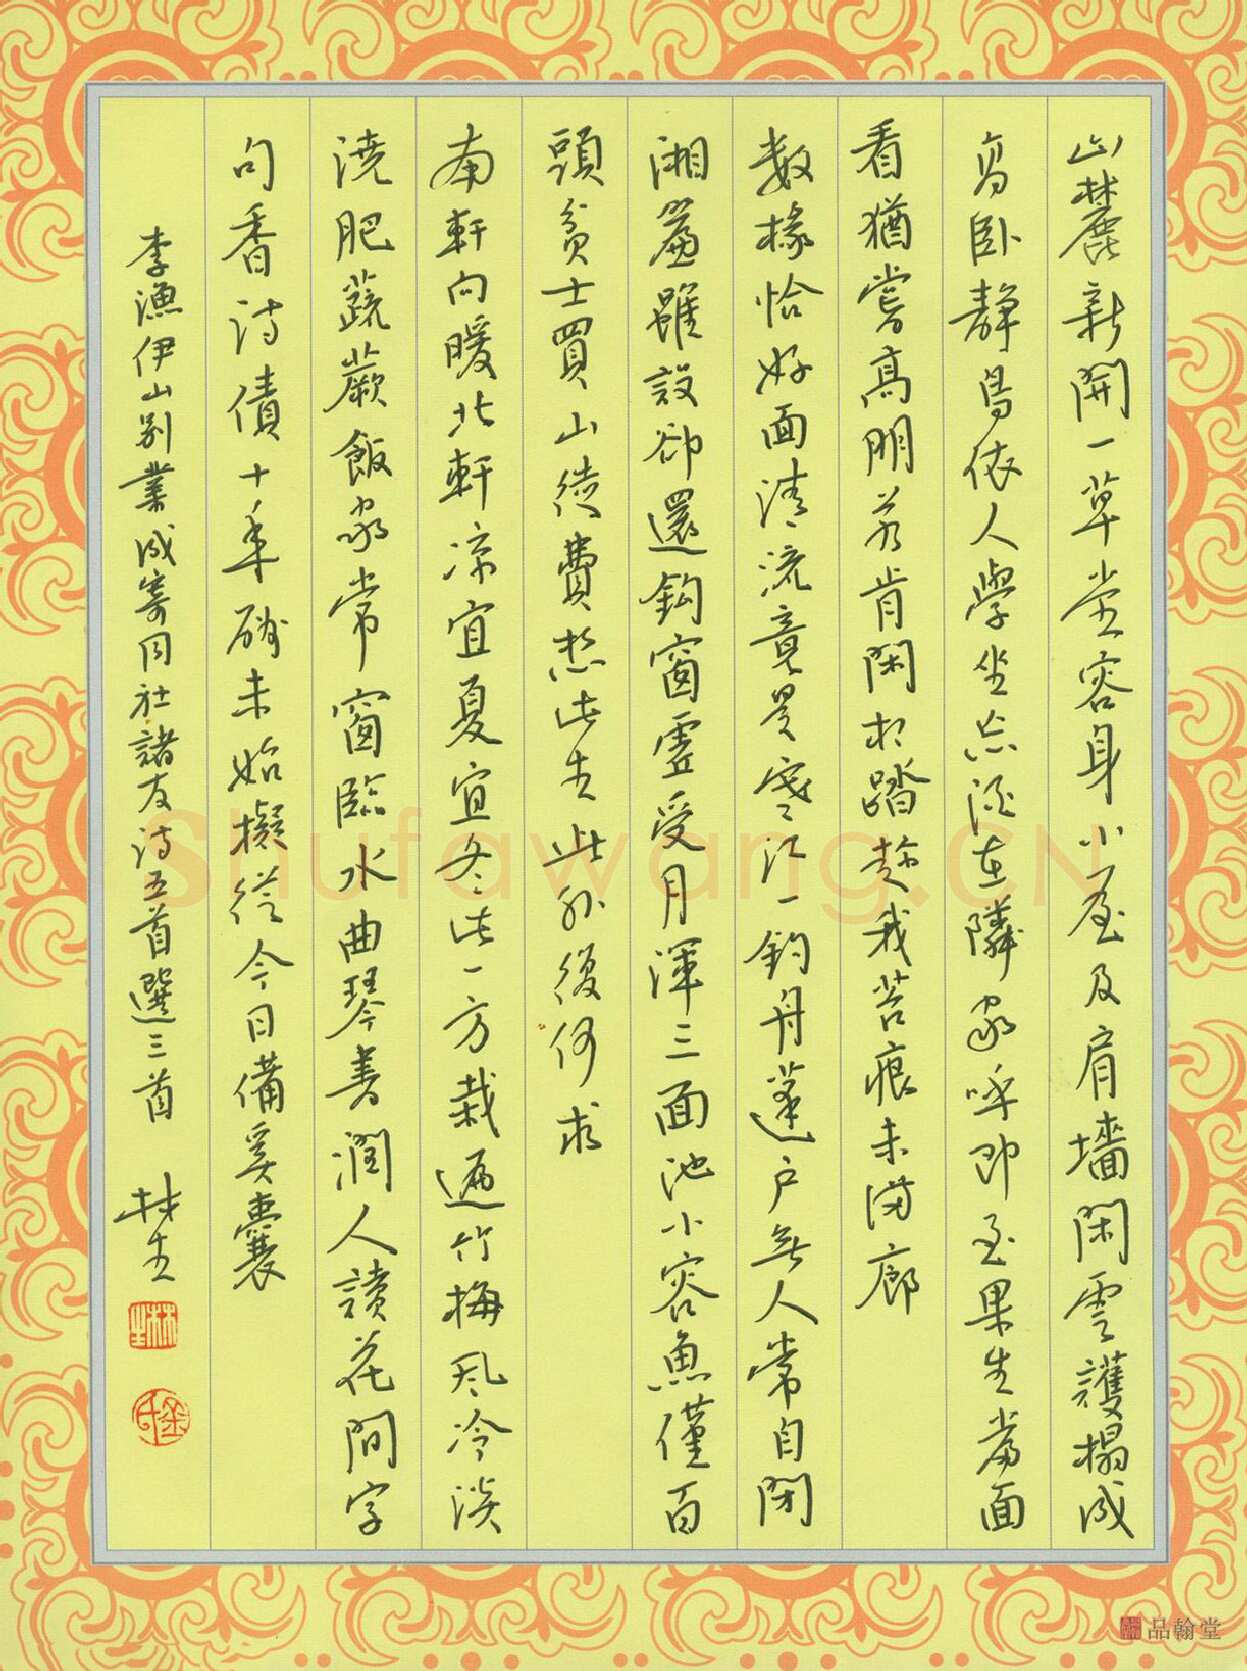 山麓新開一草堂容身小屋及肩墻閑雲護榻成
高卧靜鳥依人學坐忘酒在隣家呼即至果生當面
看猶嘗高朋若肯閑相踏趁我苔痕未滿廊
數椽恰好面清流竟是寒江一釣舟蓬户無人常自閉
湘簾雖設卻還鈎窗虛受月渾三面池小容魚僅百
頭貧士買山徒費愁此生此外復何求
南軒向暖北軒凉宜夏宜冬此一方栽遍竹梅風冷淡
澆肥蔬蕨飯家常窗臨水曲琴書潤人讀花間字
句香詩債十年酬未始擬從今日備奚囊
李漁伊山别業成寄同社諸友詩五首選三首 林生
林生
Shufawang.CN
品翰堂